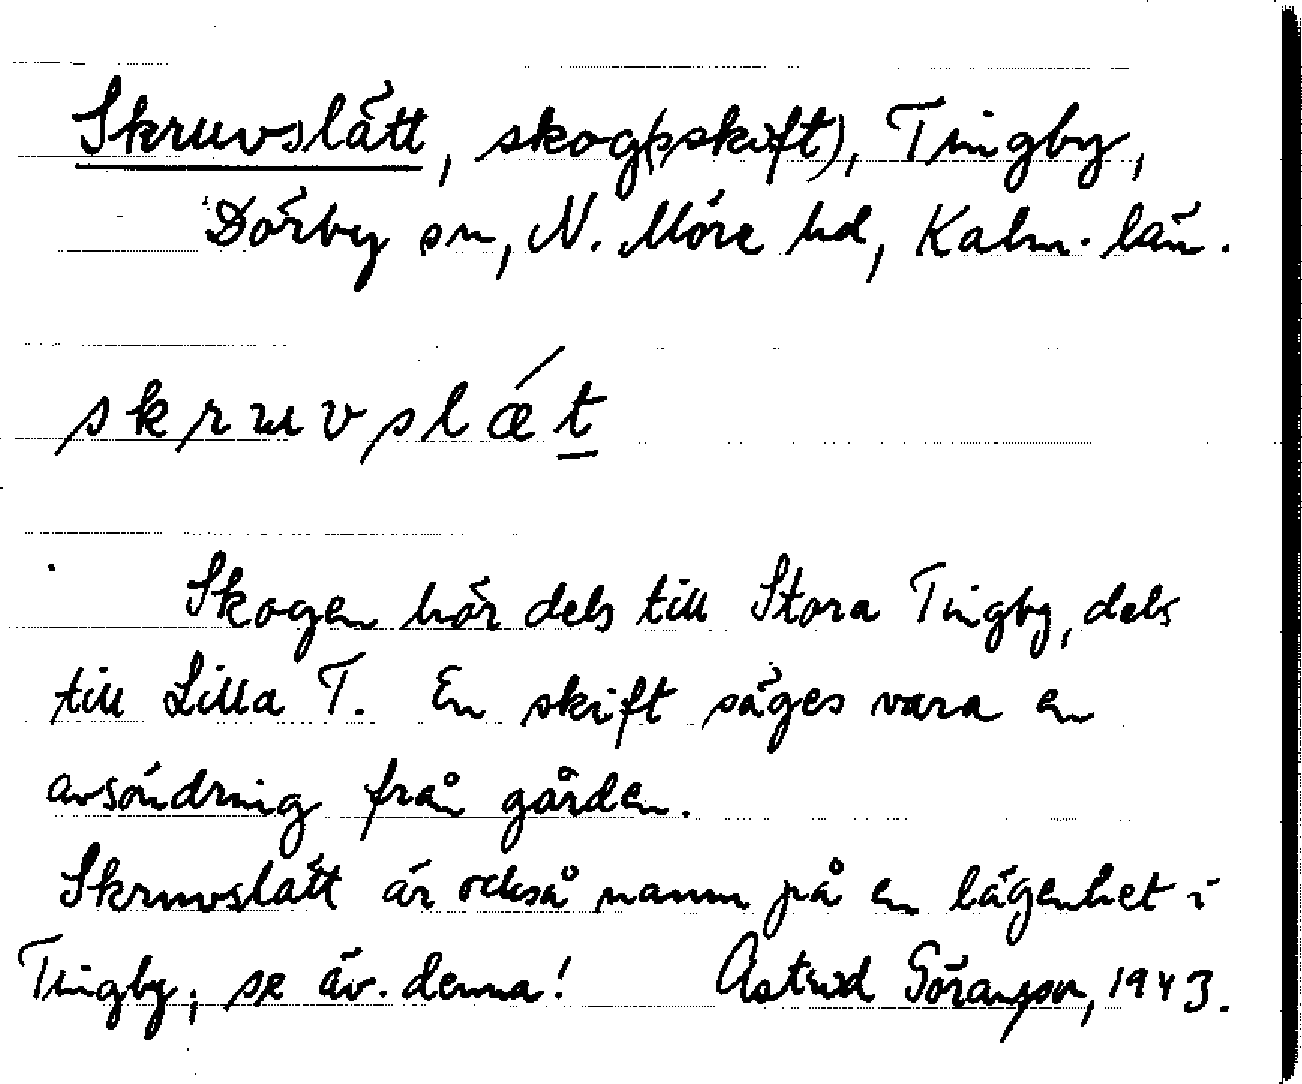 Skruvslätt, skog(sskift), Tingby,
Dörby sn, N. Möre hd, Kalm. län.
skruvslǽt
Skogen hör dels till Stora Tingby, dels
till Lilla T. En skift säges vara en
avsöndring från gården.
Skruvslätt är också namn på en lägenhet i
Tingby, se äv. denna! Astrid Göransson, 1943.